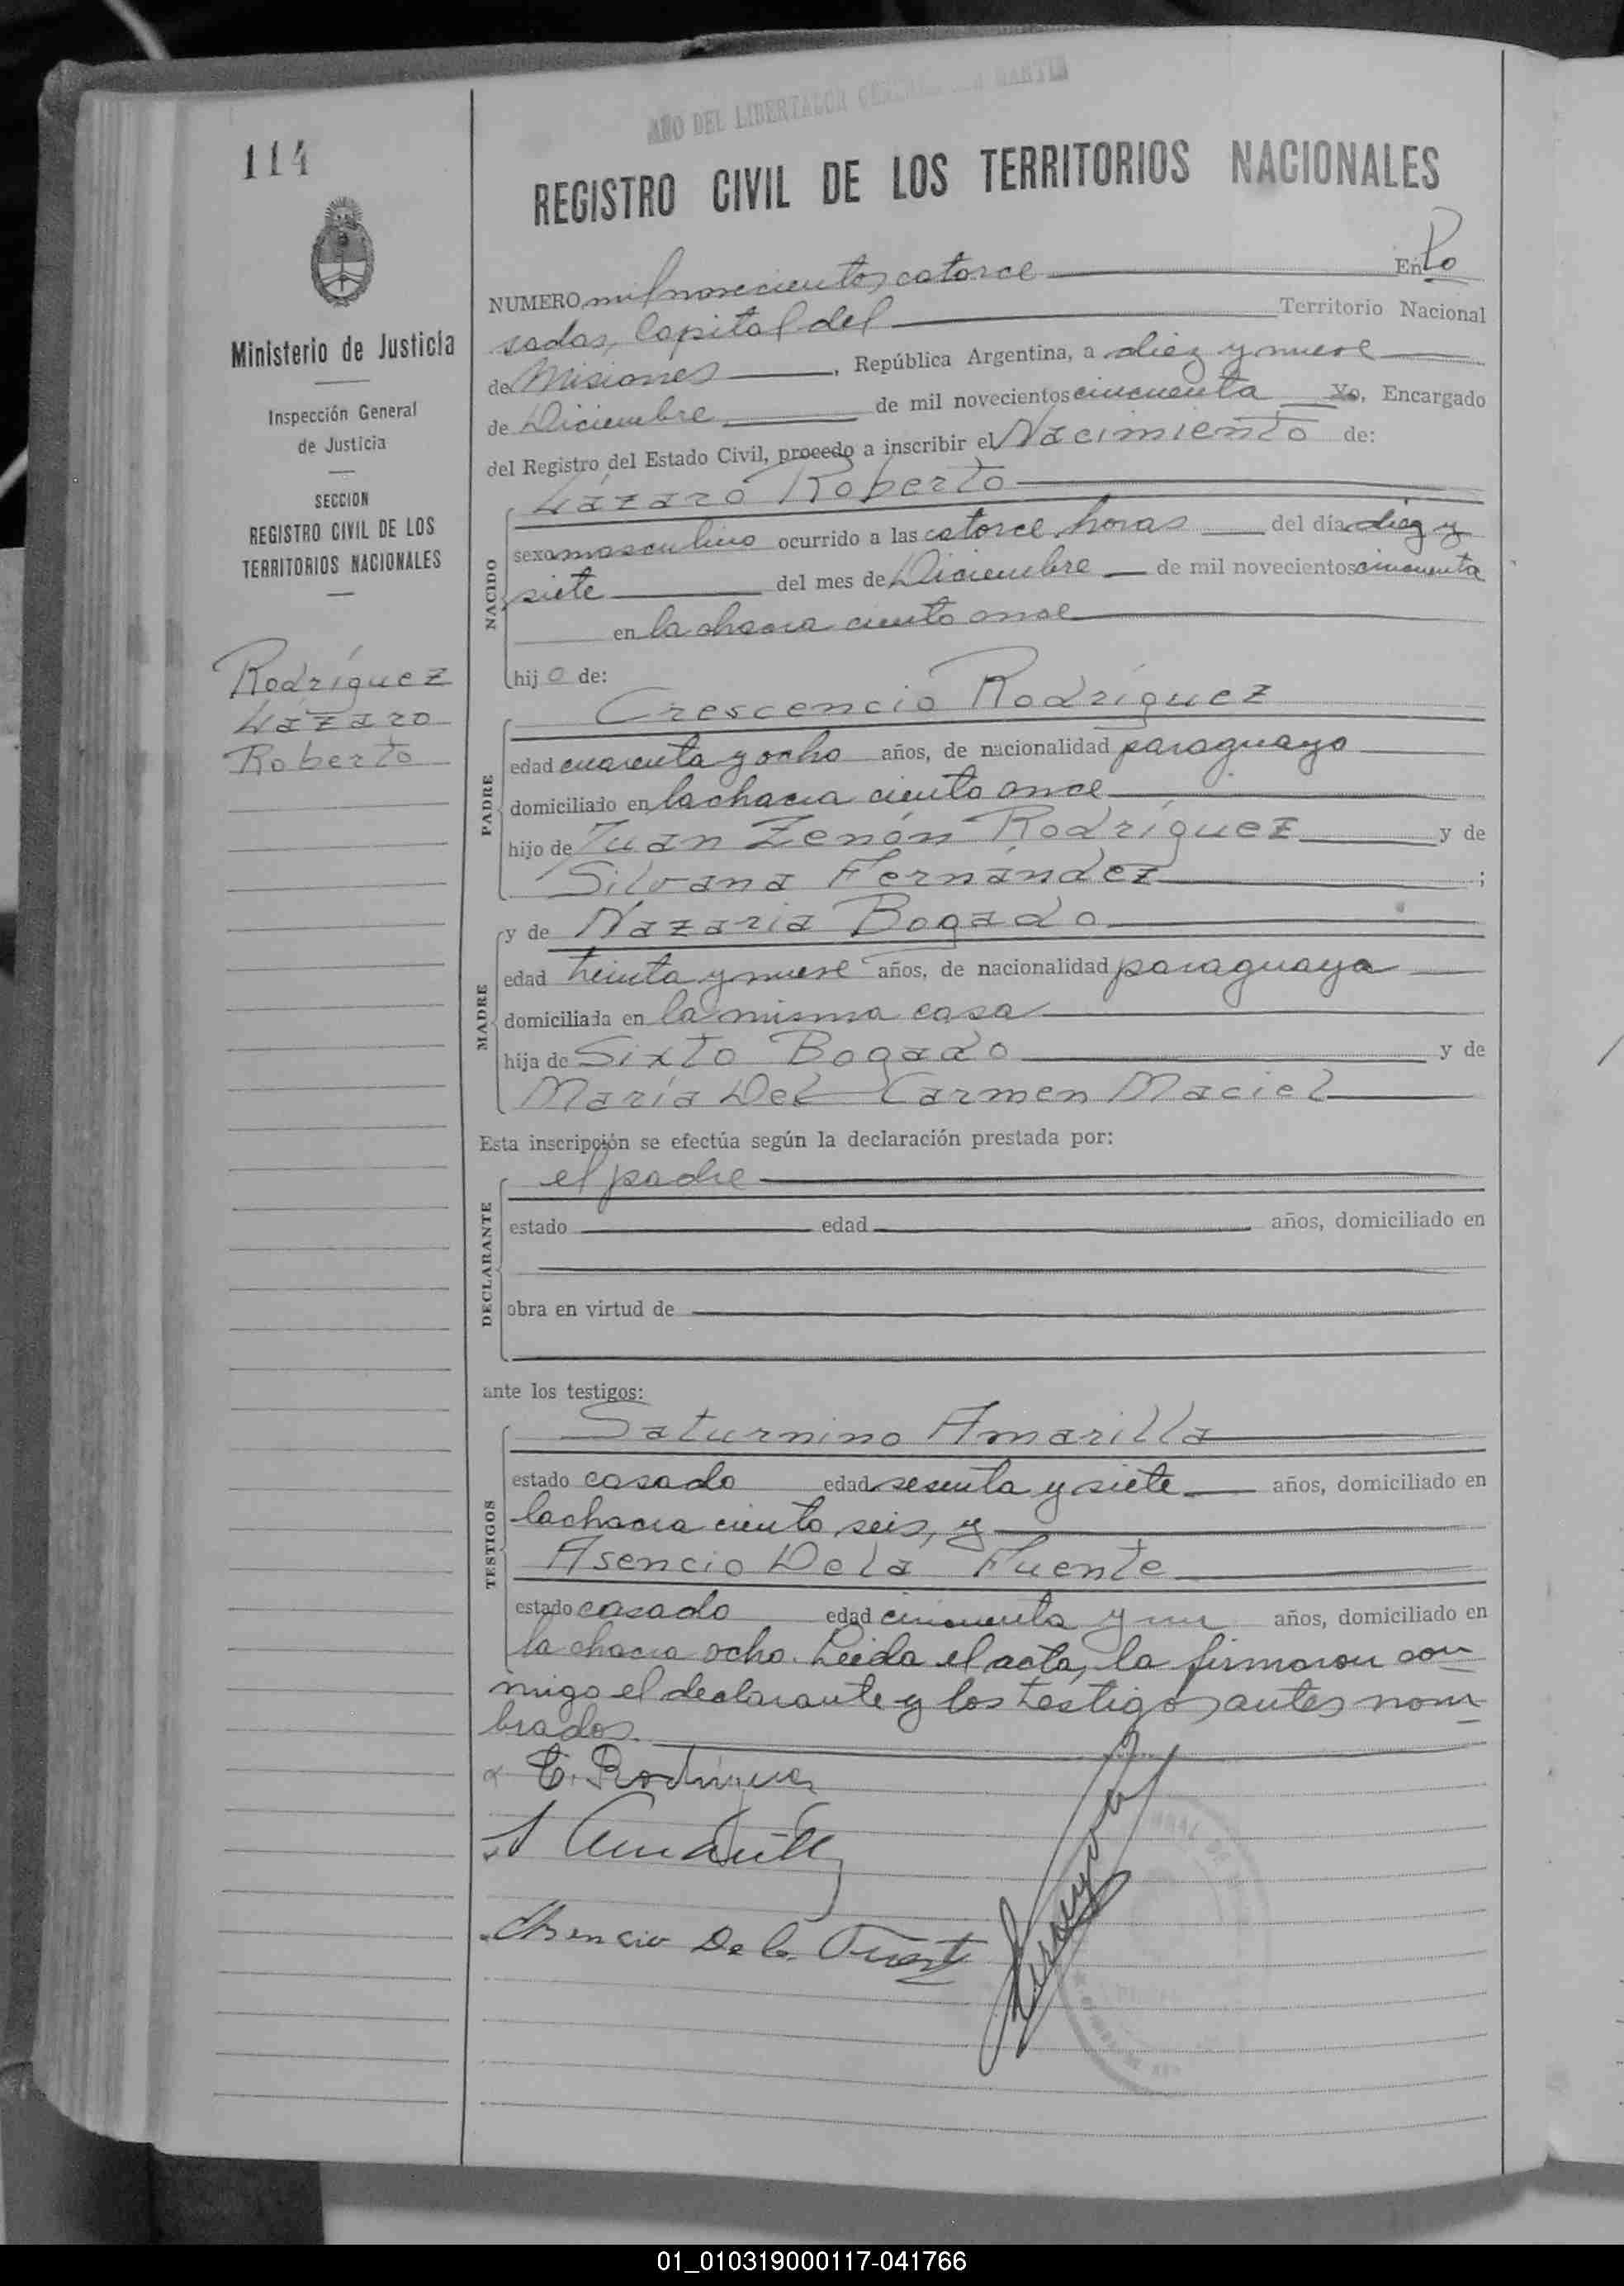 AÑO DEL LIBERTADOR GENERAL SAN MARTIN
114
REGISTRO CIVIL DE LOS TERRITORIOS NACIONALES
Ministerio de Justicia
Inspección General
de Justicia
SECCION
REGISTRO CIVIL DE LOS
TERRITORIOS NACIONALES
Rodríguez
Lázaro
Roberto
NUMERO, mil novecientos catorce En Po
sadas, Capital del Territorio Nacional
de Misiones, República Argentina, a diez y nueve
de Diciembre de mil novecientos cincuenta Yo, Encargado
del Registro del Estado Civil, procedo a inscribir el Nacimiento de:
Lázaro Roberto
NACIDO
sexo masculino ocurrido a las catorce horas del día diez y
siete del mes de Diciembre de mil novecientos cincuenta
en la chacra ciento once
hijo de:
Crescencio Rodríguez
PADRE
edad cuarenta y ocho años, de nacionalidad paraguayo
domiciliado en la chacra ciento once
hijo de Juan Zenón Rodríguez y de
Silvana Fernández ;
MADRE
y de Nazaria Bogado
edad treinta y nueve años, de nacionalidad paraguaya
domiciliada en la misma casa
hija de Sixto Bogado y de
María Del Carmen Maciel
Esta inscripción se efectúa según la declaración prestada por:
DECLARANTE
el padre
estado edad años, domiciliado en
obra en virtud de
ante los testigos:
TESTIGOS
Saturnino Amarilla
estado casado edad sesenta y siete años, domiciliado en
la chacra ciento seis, y
Asencio De la Fuente
estado casado edad cincuenta y un años, domiciliado en
la chacra ocho. Leida el acta, la firmaron con
migo el declarante y los testigos antes nom
brados.
C. Rodríguez
S Amarilla
Asencio De la Fuente
01_010319000117-041766